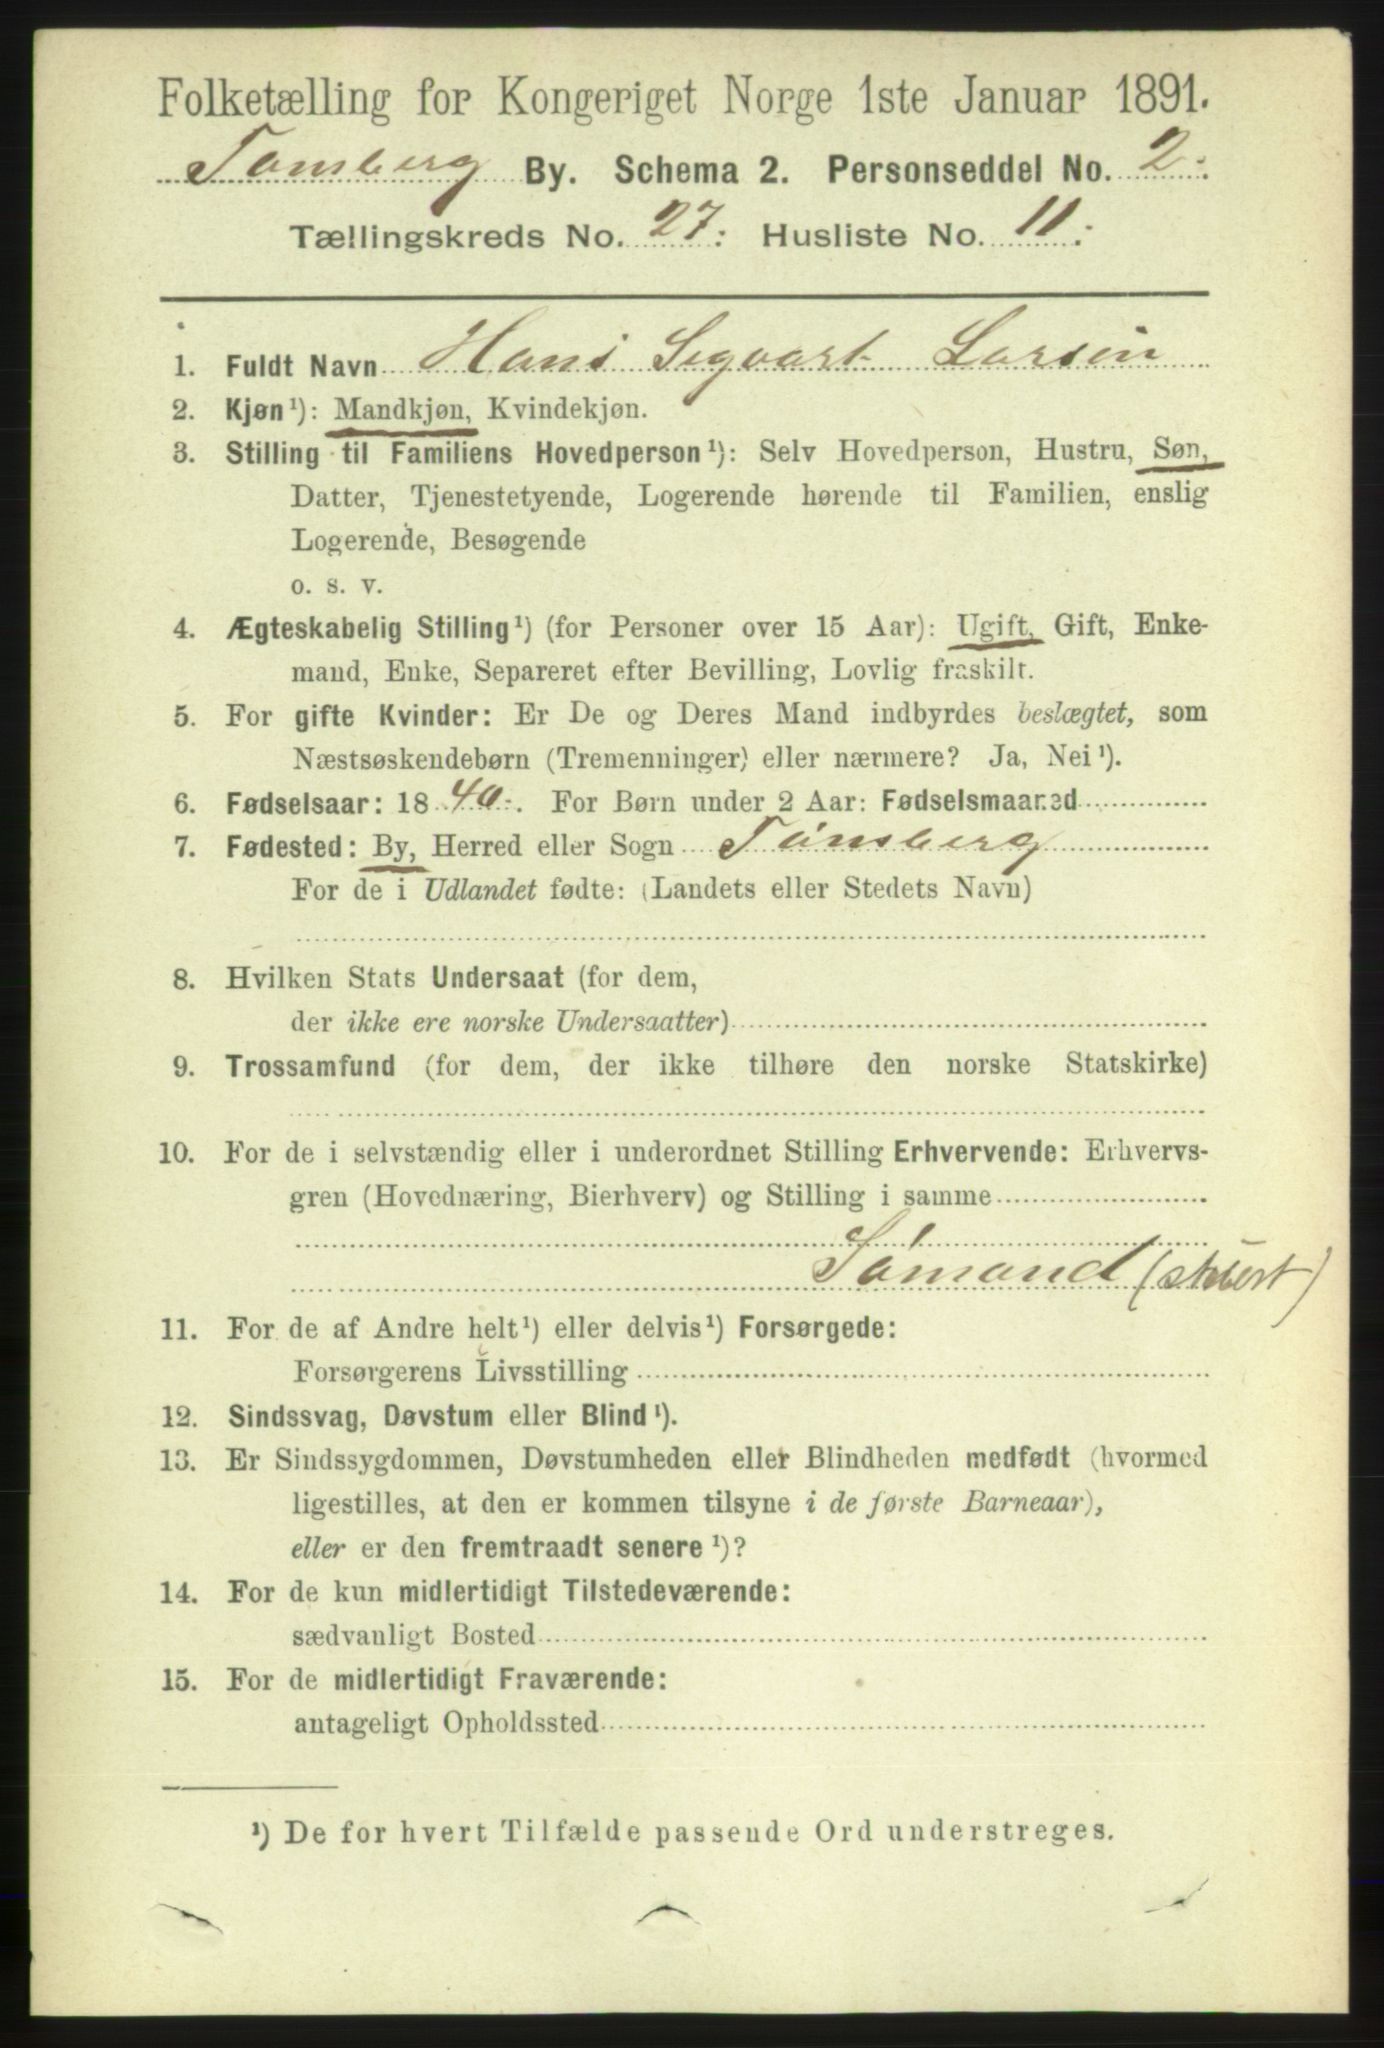 Folketælling for Kongeriget Norge 1ste Januar 1891.
Tønsberg By. Schema 2. Personseddel No. 2.
Tællingskreds No. 27. Husliste No. 11.
1. Fuldt Navn Hans Sigvart Larsen
2. Kjøn¹): Mandkjøn, Kvindekjøn.
3. Stilling til Familiens Hovedperson¹): Selv Hovedperson, Hustru, Søn,
Datter, Tjenestetyende, Logerende hørende til Familien, enslig
Logerende, Besøgende
o. s. v.
4. Ægteskabelig Stilling¹) (for Personer over 15 Aar): Ugift, Gift, Enke-
mand, Enke, Separeret efter Bevilling, Lovlig fraskilt.
5. For gifte Kvinder: Er De og Deres Mand indbyrdes beslægtet, som
Næstsøskendebørn (Tremenninger) eller nærmere? Ja, Nei¹).
6. Fødselsaar: 1840. For Børn under 2 Aar: Fødselsmaaned
7. Fødested: By, Herred eller Sogn Tønsberg
For de i Udlandet fødte: (Landets eller Stedets Navn)
8. Hvilken Stats Undersaat (for dem,
der ikke ere norske Undersaatter)
9. Trossamfund (for dem, der ikke tilhøre den norske Statskirke)
10. For de i selvstændig eller i underordnet Stilling Erhvervende: Erhvervs-
gren (Hovednæring, Bierhverv) og Stilling i samme
Sømand (stuert)
11. For de af Andre helt¹) eller delvis¹) Forsørgede:
Forsørgerens Livsstilling
12. Sindssvag, Døvstum eller Blind¹).
13. Er Sindssygdommen, Døvstumheden eller Blindheden medfødt (hvormed
ligestilles, at den er kommen tilsyne i de første Barneaar),
eller er den fremtraadt senere¹)?
14. For de kun midlertidigt Tilstedeværende:
sædvanligt Bosted
15. For de midlertidigt Fraværende:
antageligt Opholdssted
¹) De for hvert Tilfælde passende Ord understreges.